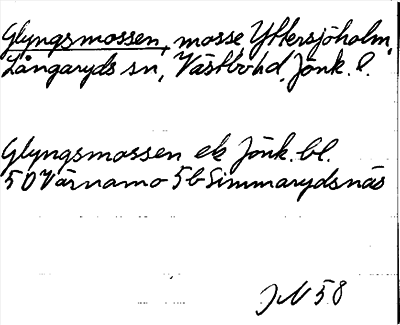 Glyngsmossen, mosse Yttersjöholm,
Långaryds sn, Västbo hd, Jönk. l.
Glyngsmossen ek Jönk. bl.
5 D Värnamo 5b Simmarydsnäs
JN 58